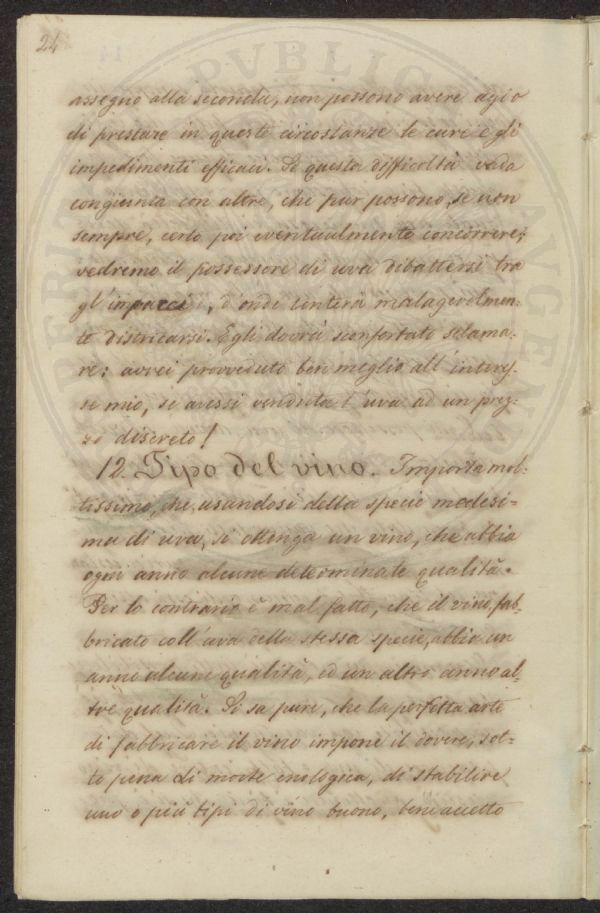 24
assegno alla seconda, non possono avere agio
di prestare in queste circostanze le cure e gli
impedimenti efficaci. Se questa difficoltà vada
congiunta con altre, che pur possono, se non
sempre, certo poi eventualmente concorrere;
vedremo il possessore di uva dibattersi tra
gl'impacci, d'onde tenterà malagevolmen-
te districarsi. Egli dovrà sconfortato sclama-
re: avrei provveduto ben meglio all'interes-
se mio, se avessi venduta l'uva ad un prez-
zo discreto!
12. Tipo del vino. Importa mol-
tissimo, che, usandosi della specie medesi-
ma di uva, si ottenga un vino, che abbia
ogni anno alcune determinate qualità.
Per lo contrario è mal fatto, che il vino, fab-
bricato coll'uva della stessa specie, abbia un
anno alcune qualità, ed un altro anno al-
tre qualità. Si sa pure, che la perfetta arte
di fabbricare il vino impone il dovere, sot-
to pena di morte enologica, di stabilire
uno o più tipi di vino buono, bene accetto